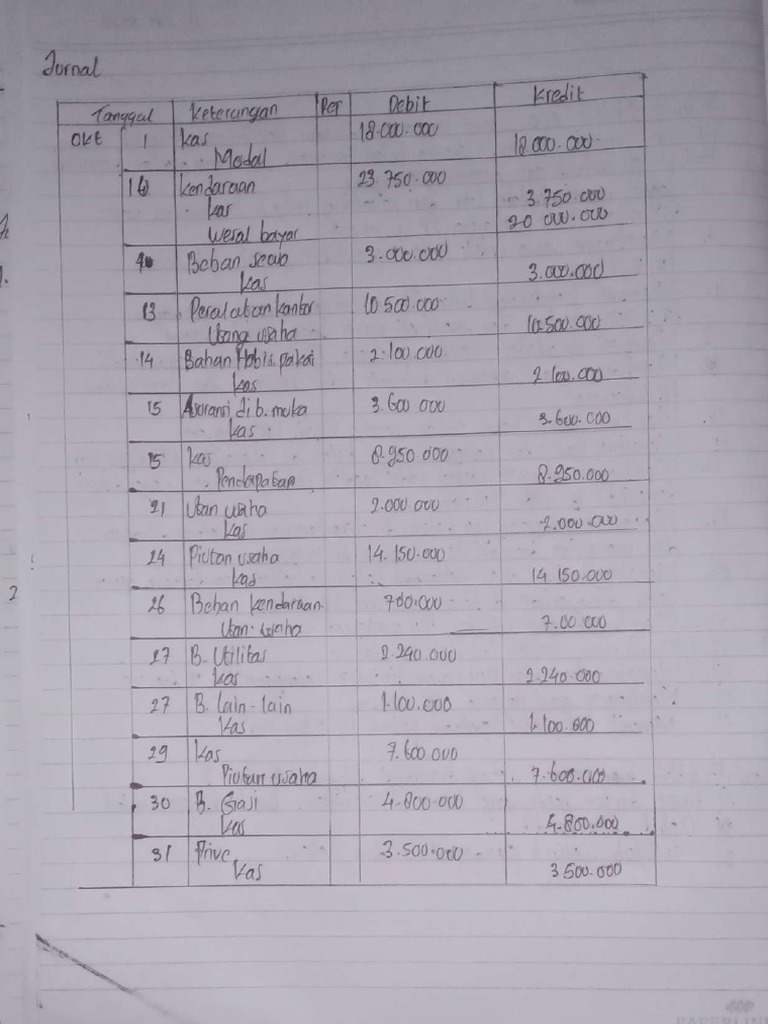 Jurnal
Tanggal Keterangan Ref Debit Kredit
Okt 1 Kas 18.000.000
Modal 18.000.000
Kendaraan 23.750.000
Kas 3.750.000
Wesel bayar 20.000.000
Beban sewa 3.000.000
Kas 3.000.000
13 Peralatan kantor 10.500.000
Utang usaha 10.500.000
14 Bahan Habis pakai 2.100.000
Kas 2.100.000
15 Asuransi di b. muka 3.600.000
Kas 3.600.000
15 Kas 8.950.000
Pendapatan 8.950.000
21 Utan usaha 2.000.000
Kas 2.000.000
24 Piutan usaha 14.150.000
Kas 14.150.000
26 Beban kendaraan 700.000
Utan usaha 7.00.000
27 B. Utilitas 2.240.000
Kas 2.240.000
27 B. lain-lain 1.100.000
Kas 1.100.000
29 Kas 7.600.000
Piutan usaha 7.600.000
30 B. Gaji 4.800.000
Kas 4.800.000
31 Prive 3.500.000
Kas 3.500.000
2